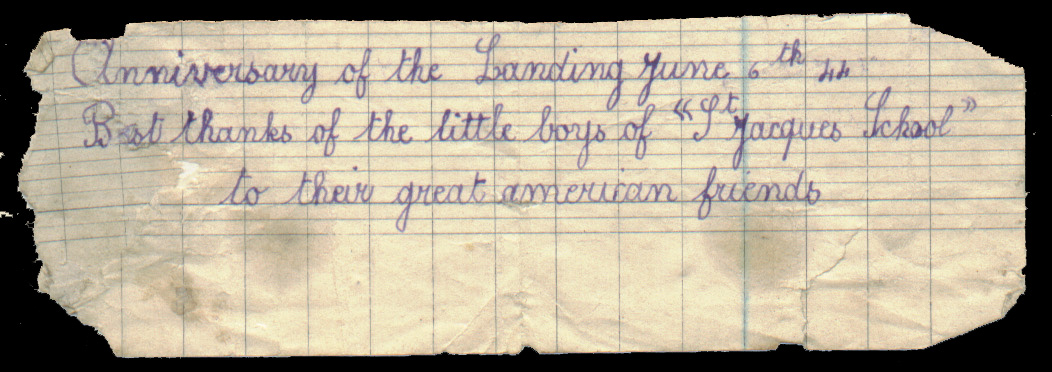 Anniversary of the Landing June 6th 44
Best thanks of the little boys of «St Jacques School»
to their great american friends